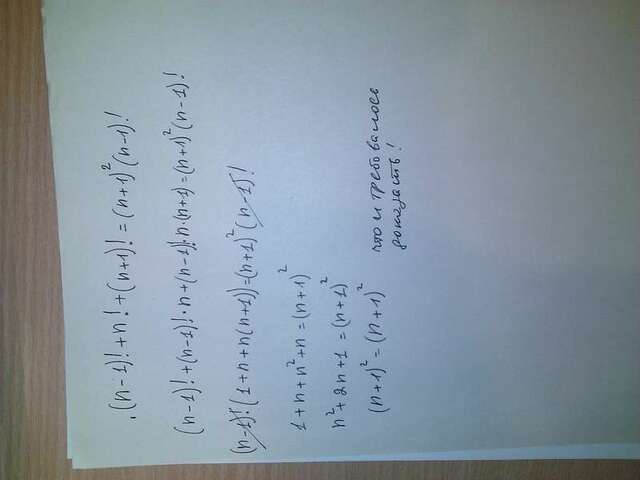 (n-1)! + n! + (n+1)! = (n+1)² (n-1)!
(n-1)! + (n-1)!·n + (n-1)!·n·(n+1) = (n+1)² (n-1)!
(n-1)! (1+n+n(n+1)) = (n+1)² (n-1)!
1+n+n²+n = (n+1)²
n²+2n+1 = (n+1)²
(n+1)² = (n+1)²
что и требовалось
доказать!